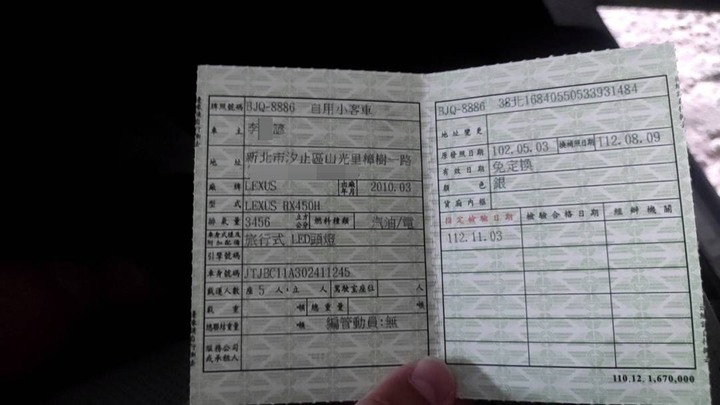 牌照號碼 BJQ-8886 自用小客車
車主 李 諺
地址 新北市汐止區山光里樟樹一路
廠牌 LEXUS 出廠年月 2010.03
型式 LEXUS RX450H
排氣量 3456 立方公分 燃料種類 汽油/電
車身式樣及附加配備 旅行式 LED頭燈
引擎號碼
車身號碼 JTJBC11A302411245
載運人數 座 5 人,立 人 駕駛室座位 人
載重 噸 總重量 噸
總聯結重量 噸 編管動員:無
服務公司或承租人
BJQ-8886 38北16840550533931484
地址變更
原發照日期 102.05.03 換補照日期 112.08.09
有效日期 免定換
顏色 銀
貨廂內框
指定檢驗日期 檢驗合格日期 經辦機關
112.11.03
110.12. 1,670,000